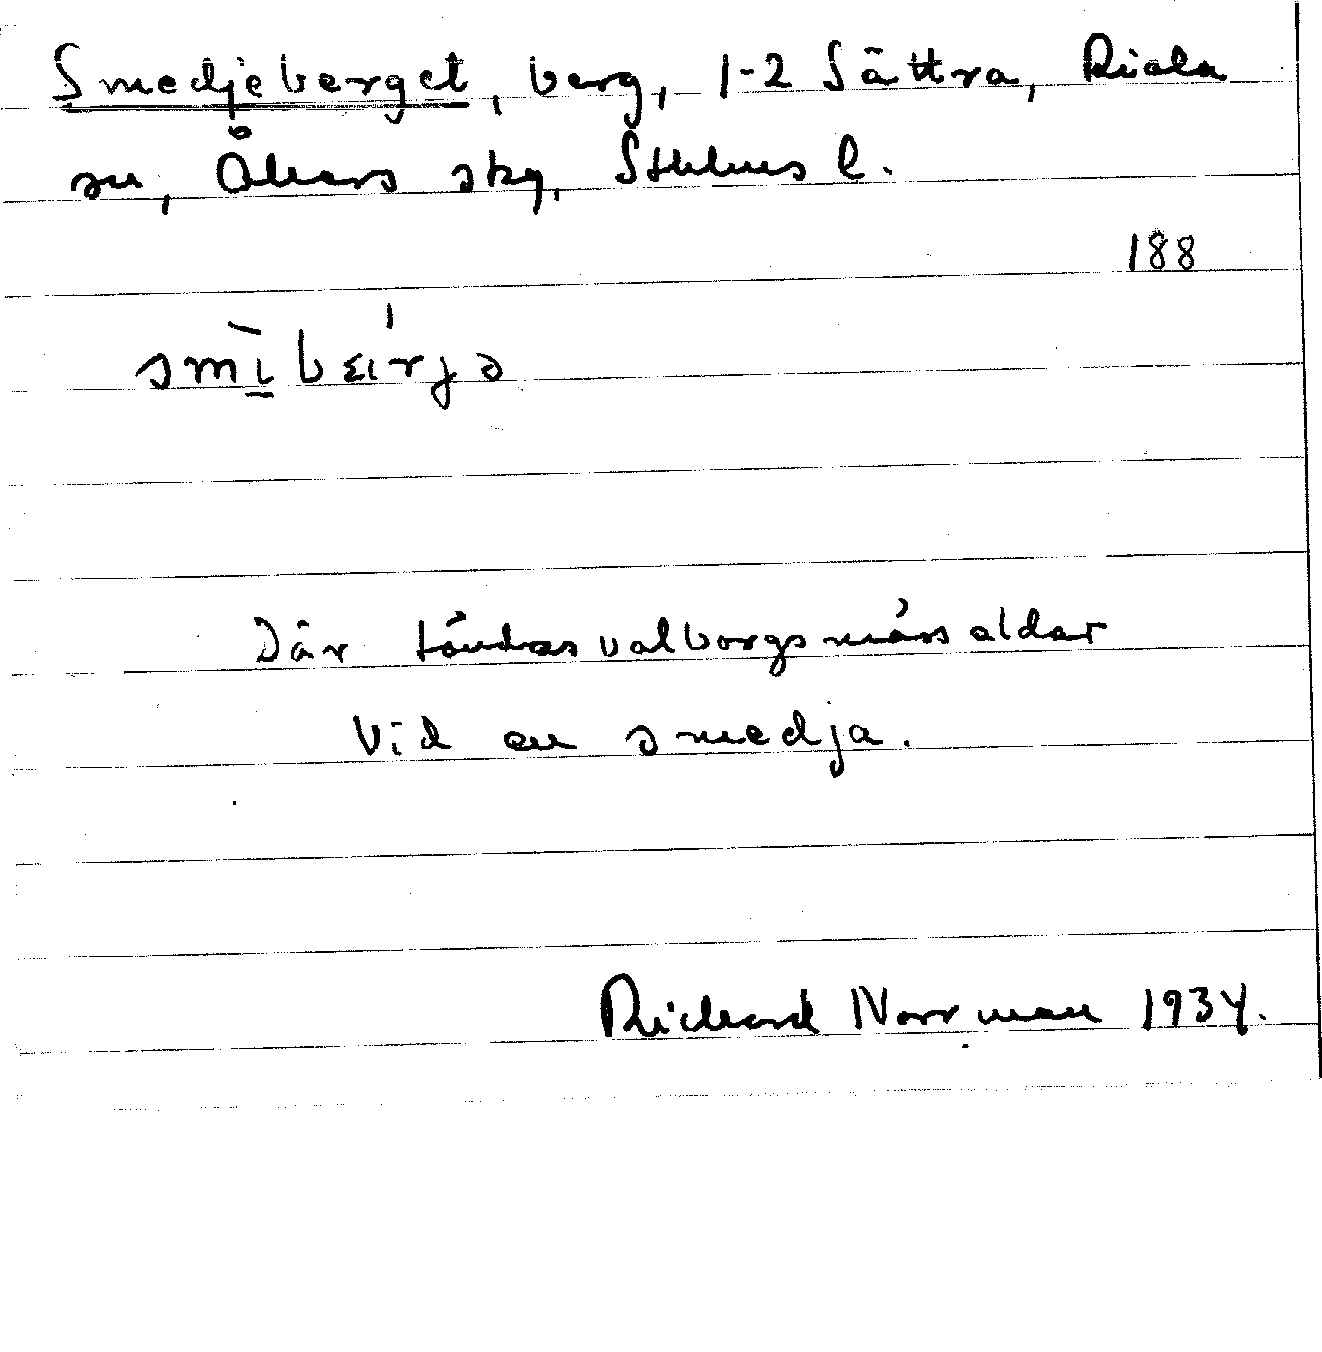 Smedjeberget, berg, 1-2 Sättra, Riala
sn, Åkers skg, Sthlms l.
188
smìbɛrjə
Där tändas valborgsmässeldar
Vid en smedja.
Richard Norrman 1934.